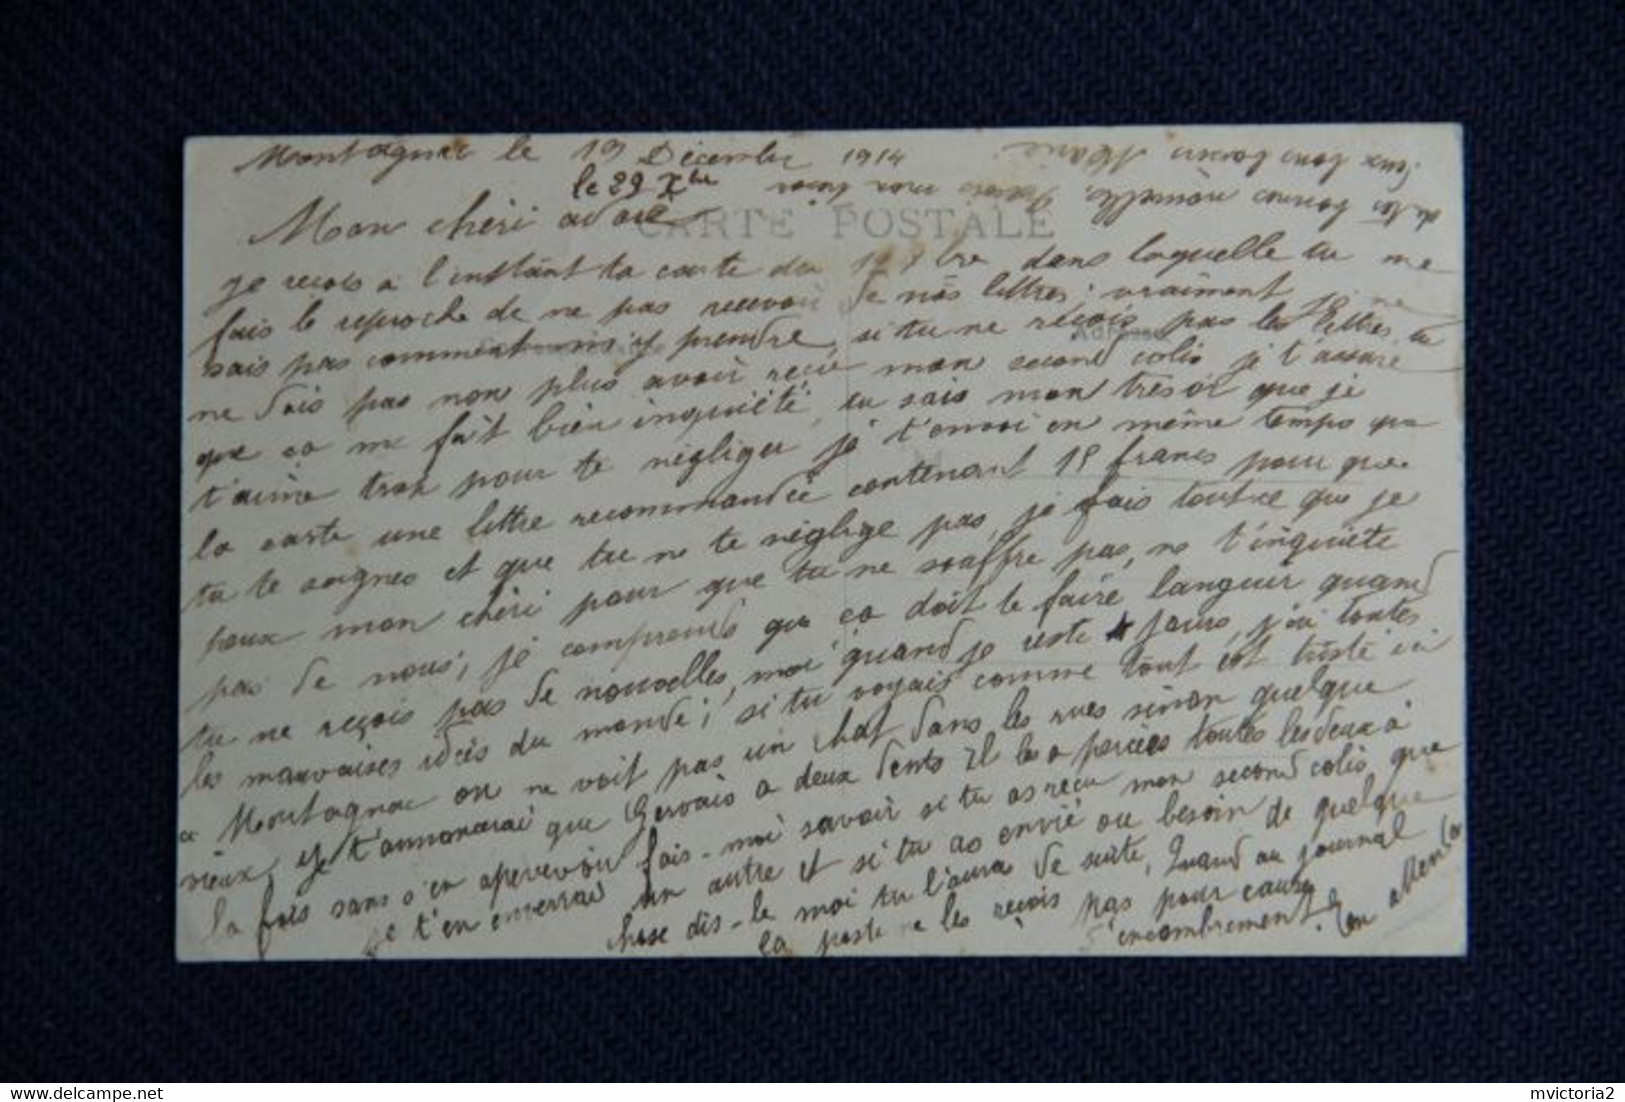 Montagnac le 19 Décembre 1914
le 29 Xbre
CARTE POSTALE
Mon chéri adoré
je reçois à l'instant ta carte du 1 Xbre dans laquelle tu me
fais le reproche de ne pas recevoir de nos lettres; vraiment je ne
sais pas comment m'y prendre, si tu ne reçois pas les lettres, tu
Adresse
ne dois pas non plus avoir reçu mon second colis je t'assure
que ça me fait bien inquiété, tu sais mon trésor que je
t'aime trop pour te négliger je t'envoi en même temps que
la carte une lettre recommandée contenant 15 francs pour que
tu te soignes et que tu ne te néglige pas, je fais toutce que je
peux mon chéri pour que tu ne souffre pas, ne t'inquiète
pas de nous; je comprends que ça doit te faire languir quand
tu ne reçois pas de nouvelles, moi quand je reste 4 jours, j'ai toutes
les mauvaises idées du monde; si tu voyais comme tout est triste ici
a Montagnac on ne voit pas un chat dans les rues sinon quelque
vieux, je t'annoncerai que Gervais a deux dents il les a percées toutes lesdeux à
la fois sans s'en apercevoir fais-moi savoir si tu as reçu mon second colis que
je t'en enverrai un autre et si tu as envie ou besoin de quelque
chose dis-le moi tu l'aura de suite, Quand au journal
la poste ne les reçois pas pour cause
d'encombrement. En attendant
de tes bonnes nouvelles,
reçois mon trésor
mes bons baisers Marie
mvictoria2